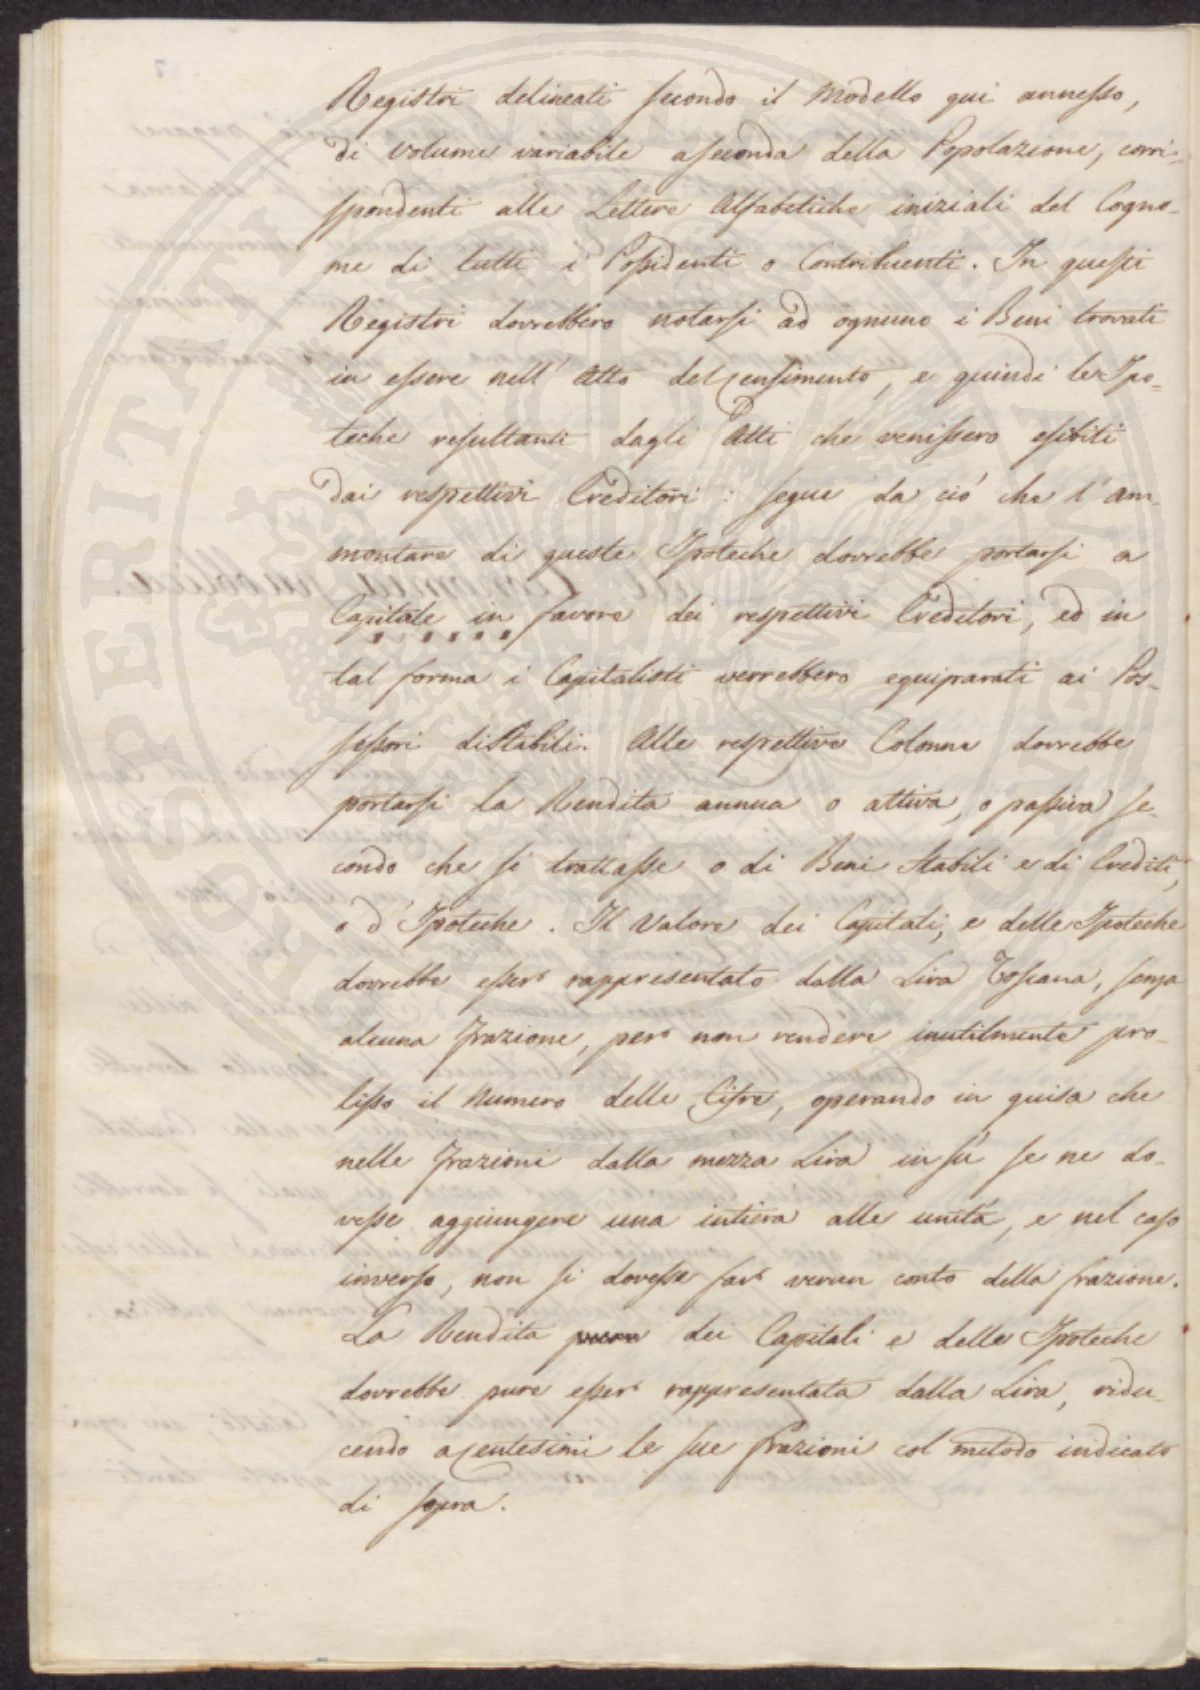 Registri delineati secondo il Modello qui annesso,
di volume variabile a seconda della Popolazione, corri-
spondenti alle Lettere Alfabetiche iniziali del Cogno-
me di tutti i Possidenti o Contribuenti. In questi
Registri dovrebbero notarsi ad ognuno i Beni trovati
in essere nell'Atto del Censimento, e quindi le Ipo-
teche resultanti dagli Atti che venissero esibiti
dai respettivi Creditori: segue da ciò che l'am-
montare di queste Ipoteche dovrebbe portarsi a
Capitale in favore dei respettivi Creditori, ed in
tal forma i Capitalisti verrebbero equiparati ai Pos-
sessori di Stabili. Alle respettive Colonne dovrebbe
portarsi la Rendita annua o attiva, o passiva se-
condo che si trattasse o di Beni Stabili e di Crediti,
o d'Ipoteche. Il Valore dei Capitali, e delle Ipoteche
dovrebbe esser rappresentato dalla Lira Toscana, senza
alcuna frazione, per non rendere inutilmente pro-
lisso il Numero delle Cifre, operando in guisa che
nelle frazioni dalla mezza Lira in sù se ne do-
vesse aggiungere una intiera alle unità, e nel caso
inverso, non si dovesse far verun conto della frazione.
La Rendita pure dei Capitali e delle Ipoteche
dovrebbe pure esser rappresentata dalla Lira, ridu-
cendo a Centesimi le sue frazioni col metodo indicato
di sopra.
PROSPERITATI AVGENDAE